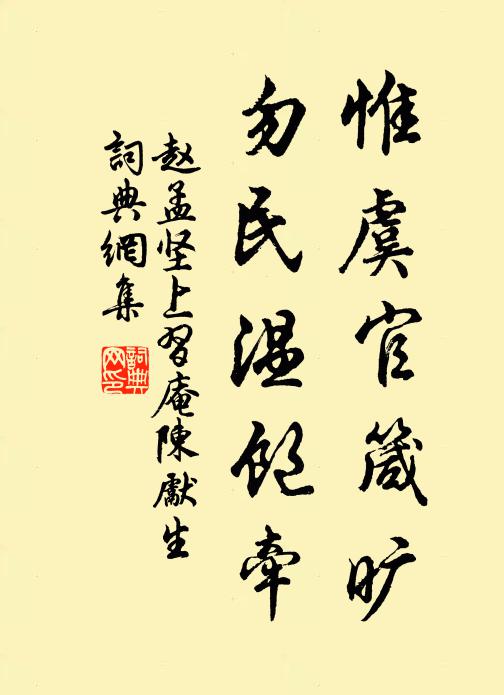 惟虞官箴旷
勿民温饱牵
赵孟坚上習庵陳獻生
詞典網集
詞典网印